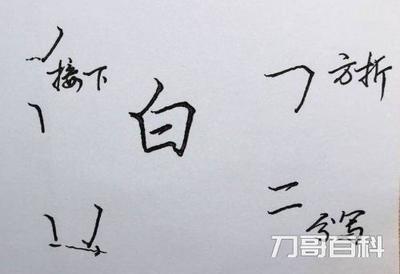 接下
白
方折
分写
刀哥百科